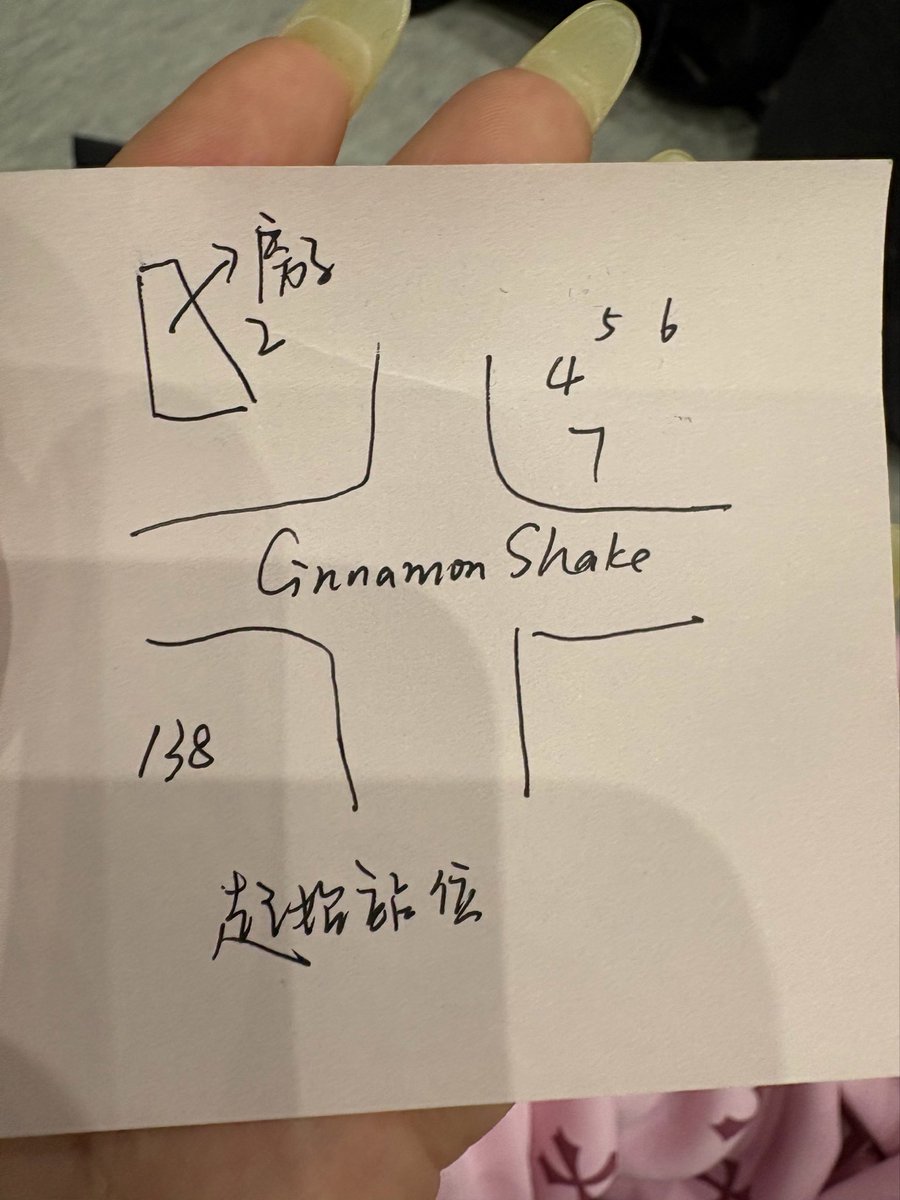 房子
2
5 6
4
7
Cinnamon Shake
138
起始站位